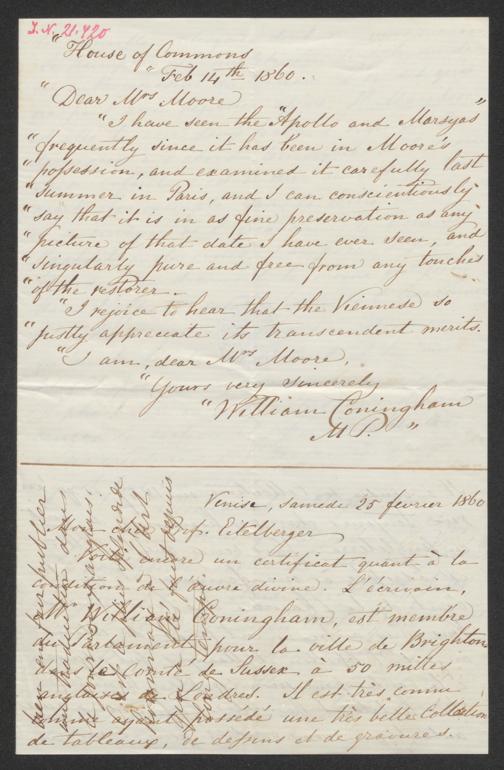 I.N. 21.420
"House of Commons
"Feb 14th 1860.
"Dear Mrs Moore
"I have seen the "Apollo and Marsyas"
"frequently since it has been in Moore's
"possession, and examined it carefully last
"summer in Paris, and I can conscientiously
"say that it is in as fine preservation as any
"picture of that date I have ever seen, and
"singularly pure and free from any touches
"of the restorer.
"I rejoice to hear that the Viennese so
"justly appreciate its transcendent merits.
"I am, dear Mrs Moore,
"Yours very sincerely
"William Coningham
M P. "
Venise, samedi 25 février 1860
Prof. Eitelberger
un certificat quant à la
condition de l'œuvre divine. L'écrivain,
Mr William Coningham, est membre
du Parlament pour la ville de Brighton
dans le Comté de Sussex à 50 milles
anglaises de Londres. Il est très connu
comme ayant possédé une très belle Collection
de tableaux, de dessins et de gravures.
publier
dans
depuis